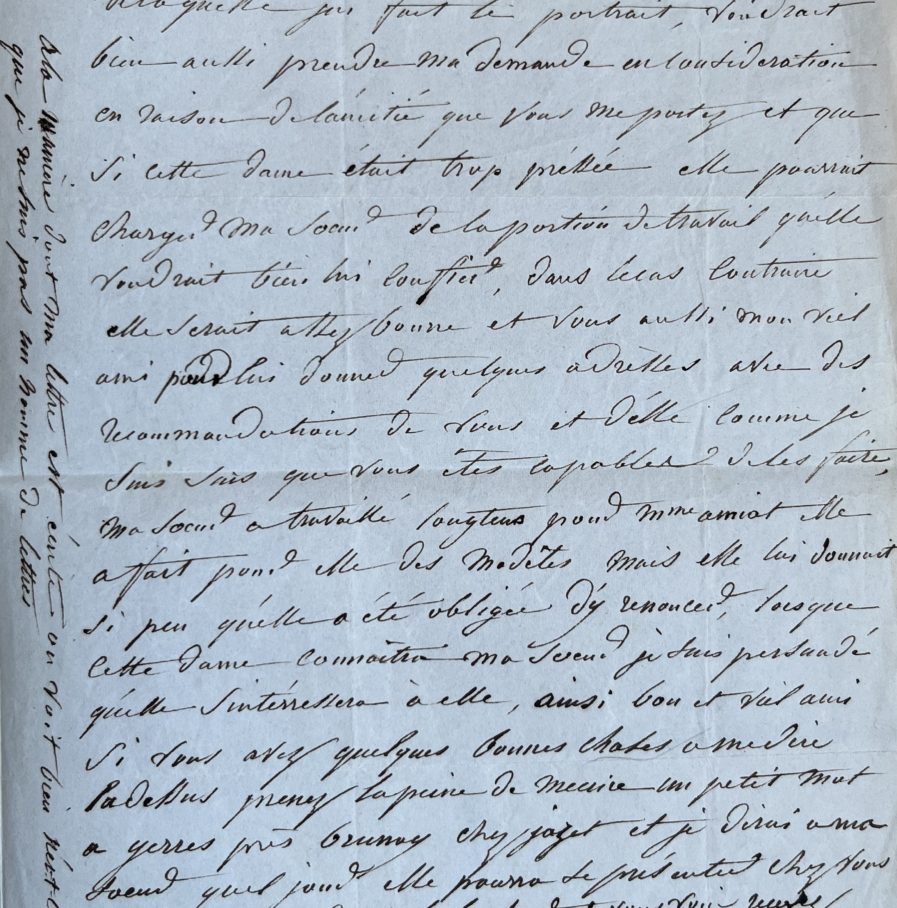 qui fait le portrait, voudrait
bien aussi prendre ma demande en Consideration
en raison de l'amitié que vous me portez et que
si cette dame était trop préssée elle pourrait
charger ma soeur de la portion de travail qu'elle
voudrait bien lui Confier, dans le cas Contraire
elle serait assez bonne et vous aussi mon vieil
ami pour lui donner quelques adrèsses avec des
recommandations de vous et d'élle comme je
suis que vous êtes capables de les faire,
ma soeur a travaillé longtems pour mme amiot elle
a fait pour elle des modêles mais elle lui donnait
si peu qu'elle a été obligée d'y renoncer, lorsque
cette dame connaîtra ma soeur je suis persuadé
qu'elle s'intérressera à elle, ainsi bon et vieil ami
si vous avez quelques bonnes choses a me dire
la dessus prenez la peine de mecrire un petit mot
a yerres près brunoy chez et je dirai a ma
soeur quel jour elle pourra se présenter chez vous
A la manière dont ma lettre est écrite on voit bien
que je ne suis pas un homme de lettres